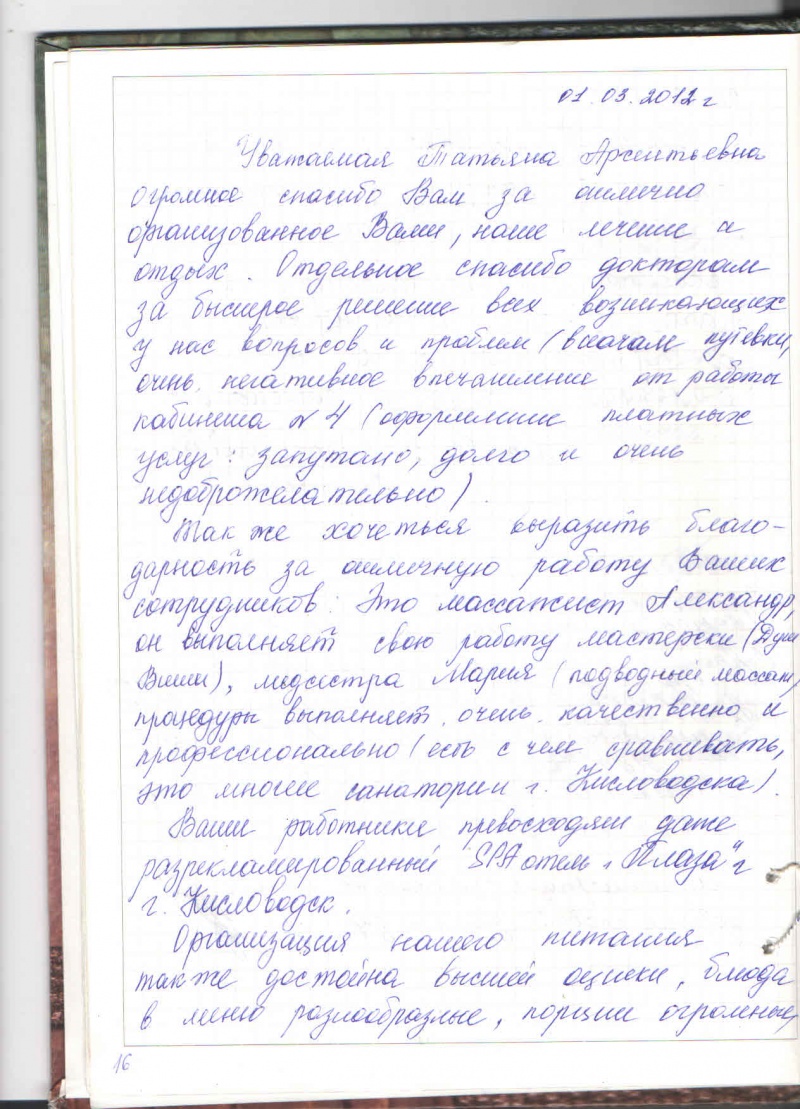 01.03.2012 г
Уважаемая Татьяна Арсентьевна
Огромное спасибо Вам за отлично
организованное Вами, наше лечение и
отдых. Отдельное спасибо докторам
за быстрое решение всех возникающих
у нас вопросов и проблем (вначале путёвки,
очень негативное впечатление от работы
кабинета №4 (оформление платных
услуг: запутано, долго и очень
недоброжелательно).
Так же хочеться выразить благо-
дарность за отличную работу Ваших
сотрудников: Это массажист Александр,
он выполняет свою работу мастерски (Душ
Виши), медсестра Мария (подводный массаж)
процедуры выполняет очень качественно и
профессионально (есть с чем сравнивать,
это многие санатории г. Кисловодска).
Ваши работники превосходят даже
разрекламированный SPA отель „Плаза" г
г. Кисловодск.
Организация нашего питания
так же достойна высшей оценки, блюда
в меню разнообразные, порции огромные,
16